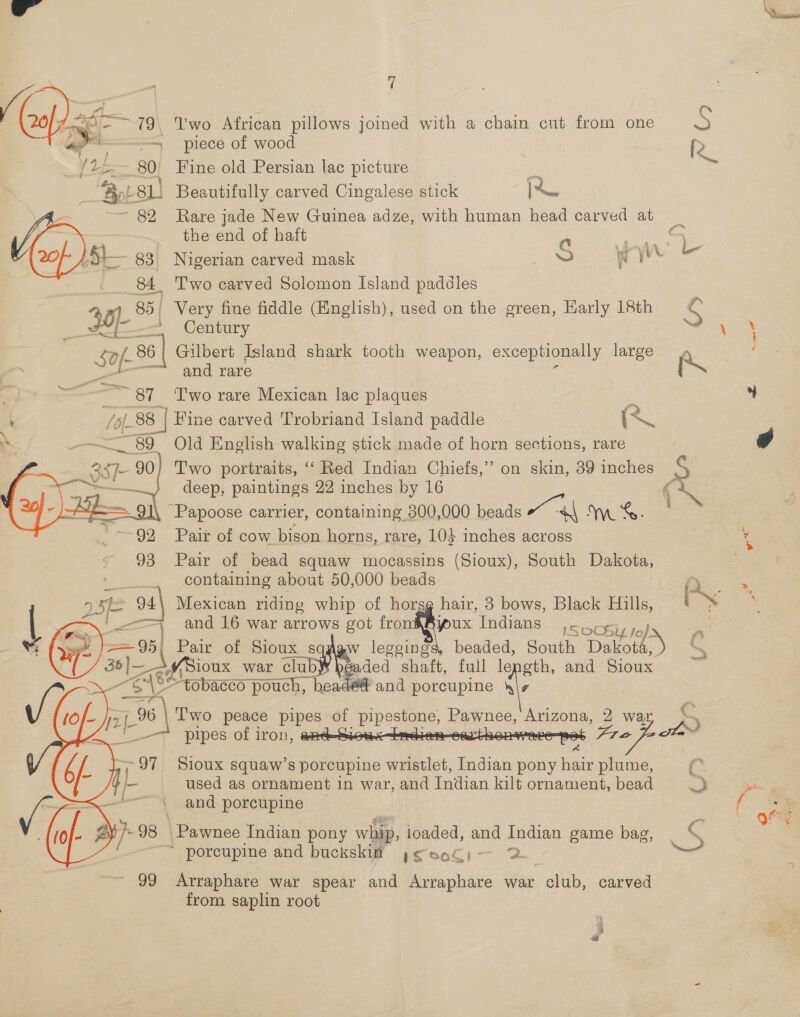 7
20/- 79 Two African pillows joined with a chain cut from one S
piece of wood R
12/- 80 Fine old Persian lac picture
81 Beautifully carved Cingalese stick R
82 Rare jade New Guinea adze, with human head carved at
the end of haft
20/- 83 Nigerian carved mask S
84 Two carved Solomon Island paddles
30/- 85 Very fine fiddle (English), used on the green, Early 18th S
Century
50/- 86 Gilbert Island shark tooth weapon, exceptionally large R
and rare
87 Two rare Mexican lac plaques
10/- 88 Fine carved Trobriand Island paddle R
89 Old English walking stick made of horn sections, rare
35/- 90 Two portraits, “Red Indian Chiefs,” on skin, 39 inches S
deep, paintings 22 inches by 16
20/- 91 Papoose carrier, containing 300,000 beads
92 Pair of cow bison horns, rare, 10½ inches across
93 Pair of bead squaw mocassins (Sioux), South Dakota,
containing about 50,000 beads
25/- 94 Mexican riding whip of horse hair, 3 bows, Black Hills, R
and 16 war arrows got from Sioux Indians
95 Pair of Sioux squaw leggings, beaded, South Dakota, S
Sioux war club, beaded shaft, full length, and Sioux
tobacco pouch, beaded and porcupine
10/- 12/- 96 Two peace pipes of pipestone, Pawnee, Arizona, 2 war S
pipes of iron, and Sioux Indian earthenware pot
6/- 97 Sioux squaw's porcupine wristlet, Indian pony hair plume,
used as ornament in war, and Indian kilt ornament, bead S
and porcupine
10/- 98 Pawnee Indian pony whip, loaded, and Indian game bag, S
porcupine and buckskin
99 Arraphare war spear and Arraphare war club, carved
from saplin root